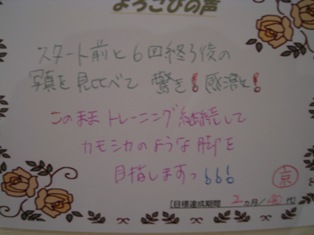 よろこびの声
スタート前と6回終了後の
写真を見比べて 驚き!感激!
このままトレーニング継続して
カモシカのような脚を
目指しますっ!!!
京
[目標達成期間 2ヵ月/